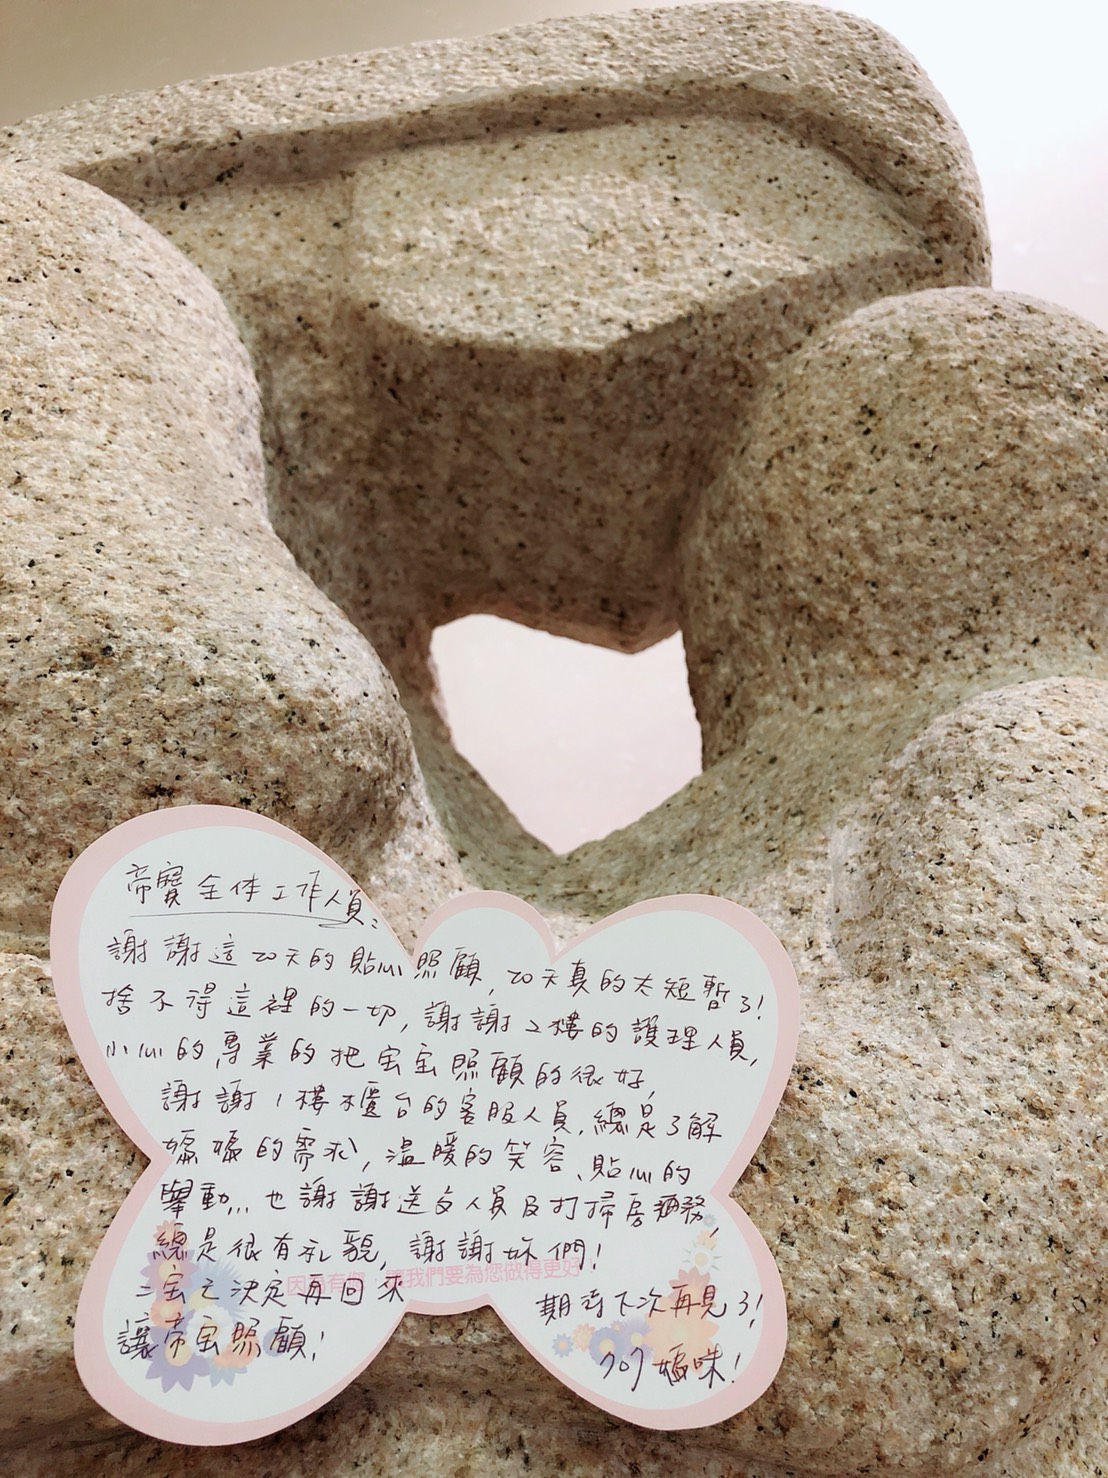 帝寶全体工作人員:
謝謝這20天的貼心照顧,20天真的太短暫了!
捨不得這裡的一切,謝謝2樓的護理人員,
小心的專業的把宝宝照顧的很好,
謝謝1樓櫃台的客服人員,總是了解
媽媽的需求,溫暖的笑容、貼心的
舉動... 也謝謝送文人員及打掃房務,
總是很有礼貌,謝謝妳們!
因為有您,讓我們要為您做得更好!
三宝已決定再回來
讓帝宝照顧!
期待下次再見了!
707媽咪!